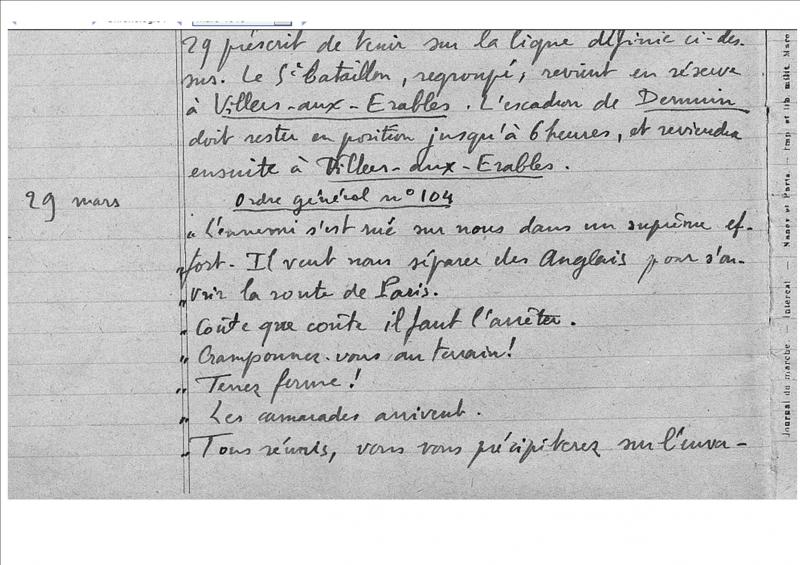 29 préscrit de tenir sur la ligne définie ci-des-
sus. Le 5e bataillon, regroupé, revient en réserve
à Villers-aux-Erables. L'escadron de Demuin
doit rester en position jusqu'à 6 heures, et reviendra
ensuite à Villers-aux-Erables.
29 mars
Ordre général n° 104
" L'ennemi s'est rué sur nous dans un suprême ef-
" fort. Il veut nous séparer des Anglais pour s'ou-
" vrir la route de Paris.
" Coûte que coûte il faut l'arrêter.
" Cramponnez-vous au terrain!
" Tenez ferme!
" Les camarades arrivent.
" Tous réunis, vous vous précipiterez sur l'enva-
Journal du marche. — Intercal — Nancy et Paris. — Imp et lib milit Marc